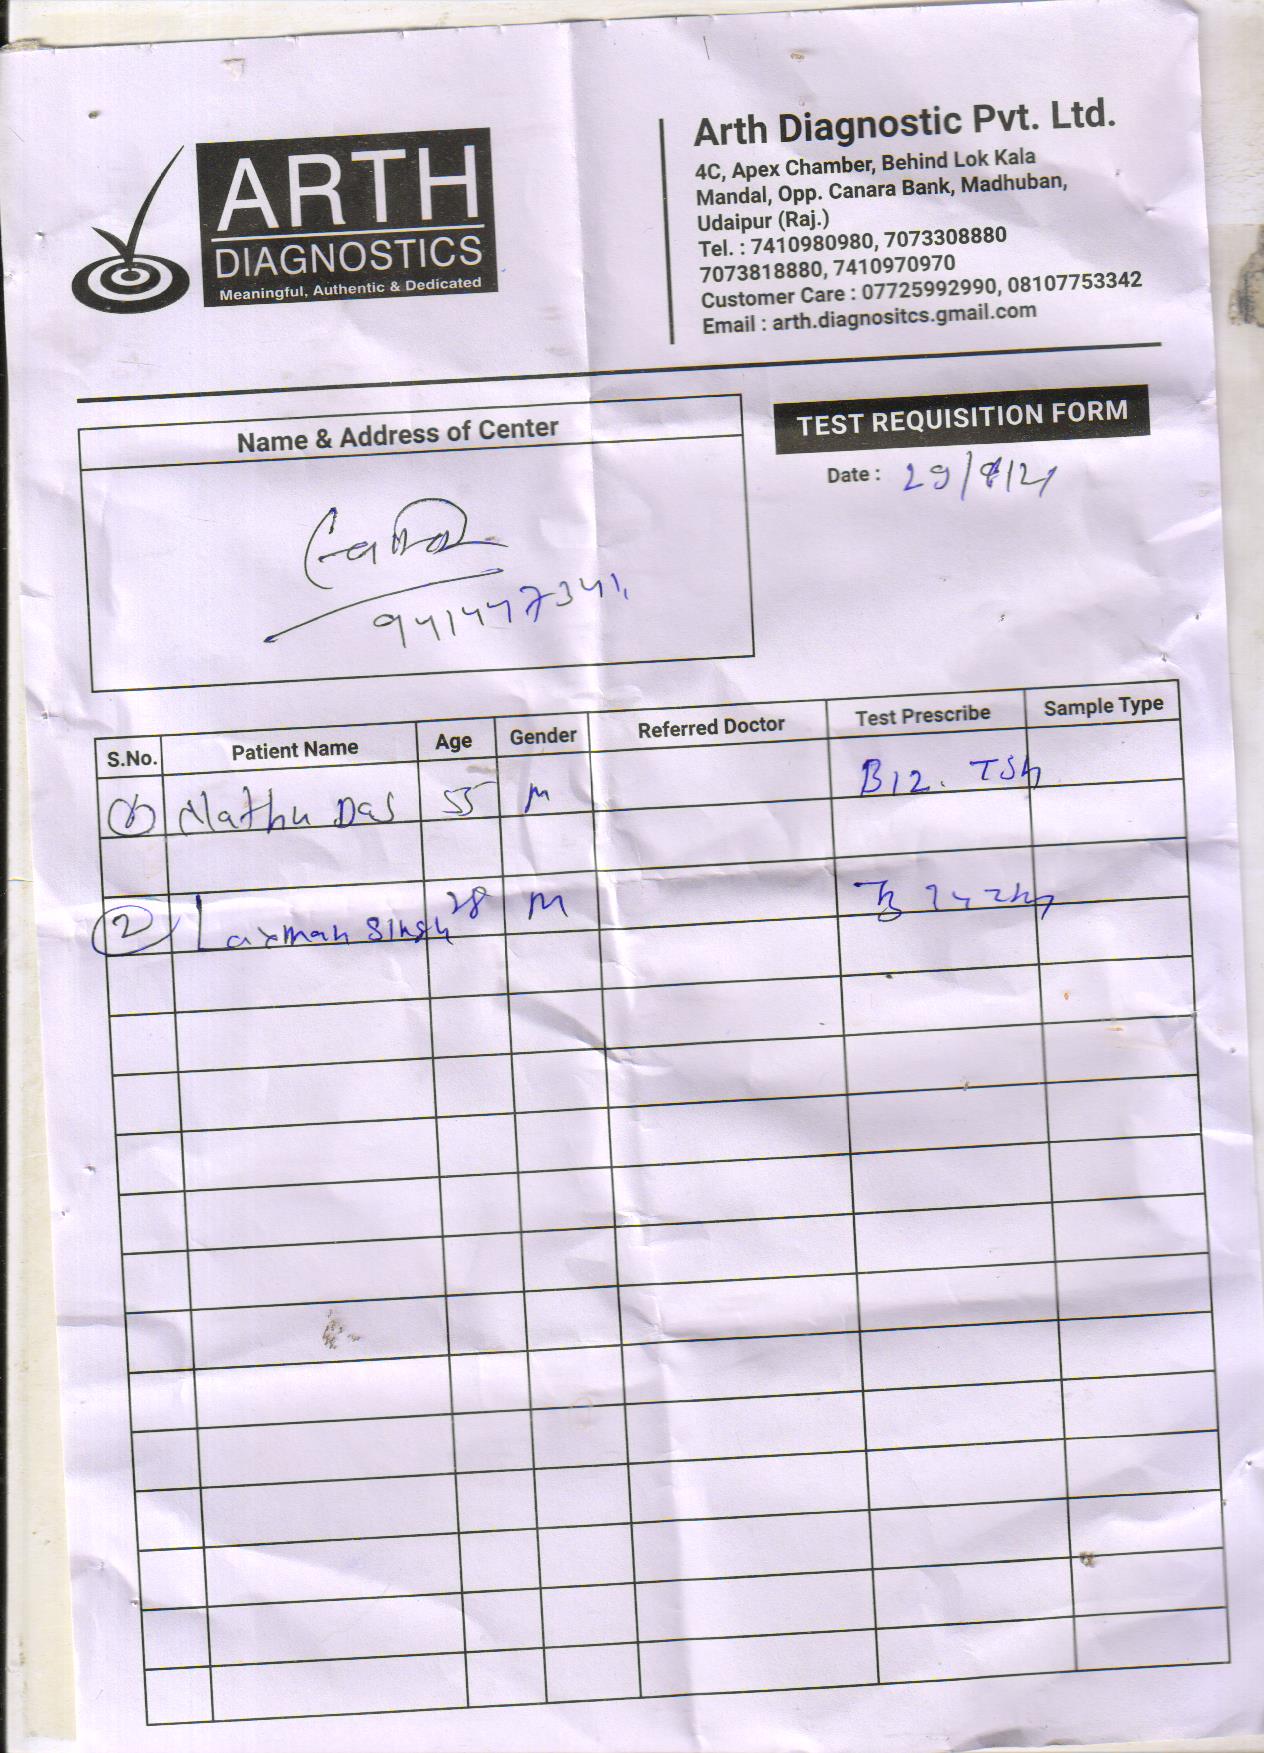 ARTH
DIAGNOSTICS
Meaningful, Authentic & Dedicated
Arth Diagnostic Pvt. Ltd.
4C, Apex Chamber, Behind Lok Kala
Mandal, Opp. Canara Bank, Madhuban,
Udaipur (Raj.)
Tel. : 7410980980, 7073308880
7073818880, 7410970970
Customer Care : 07725992990, 08107753342
Email : arth.diagnositcs.gmail.com
Name & Address of Center
9414477341
TEST REQUISITION FORM
Date : 29/
S.No. Patient Name Age Gender Referred Doctor Test Prescribe Sample Type
Nathu Das 55 M B12. TSH
2 Laxman Singh 28 M